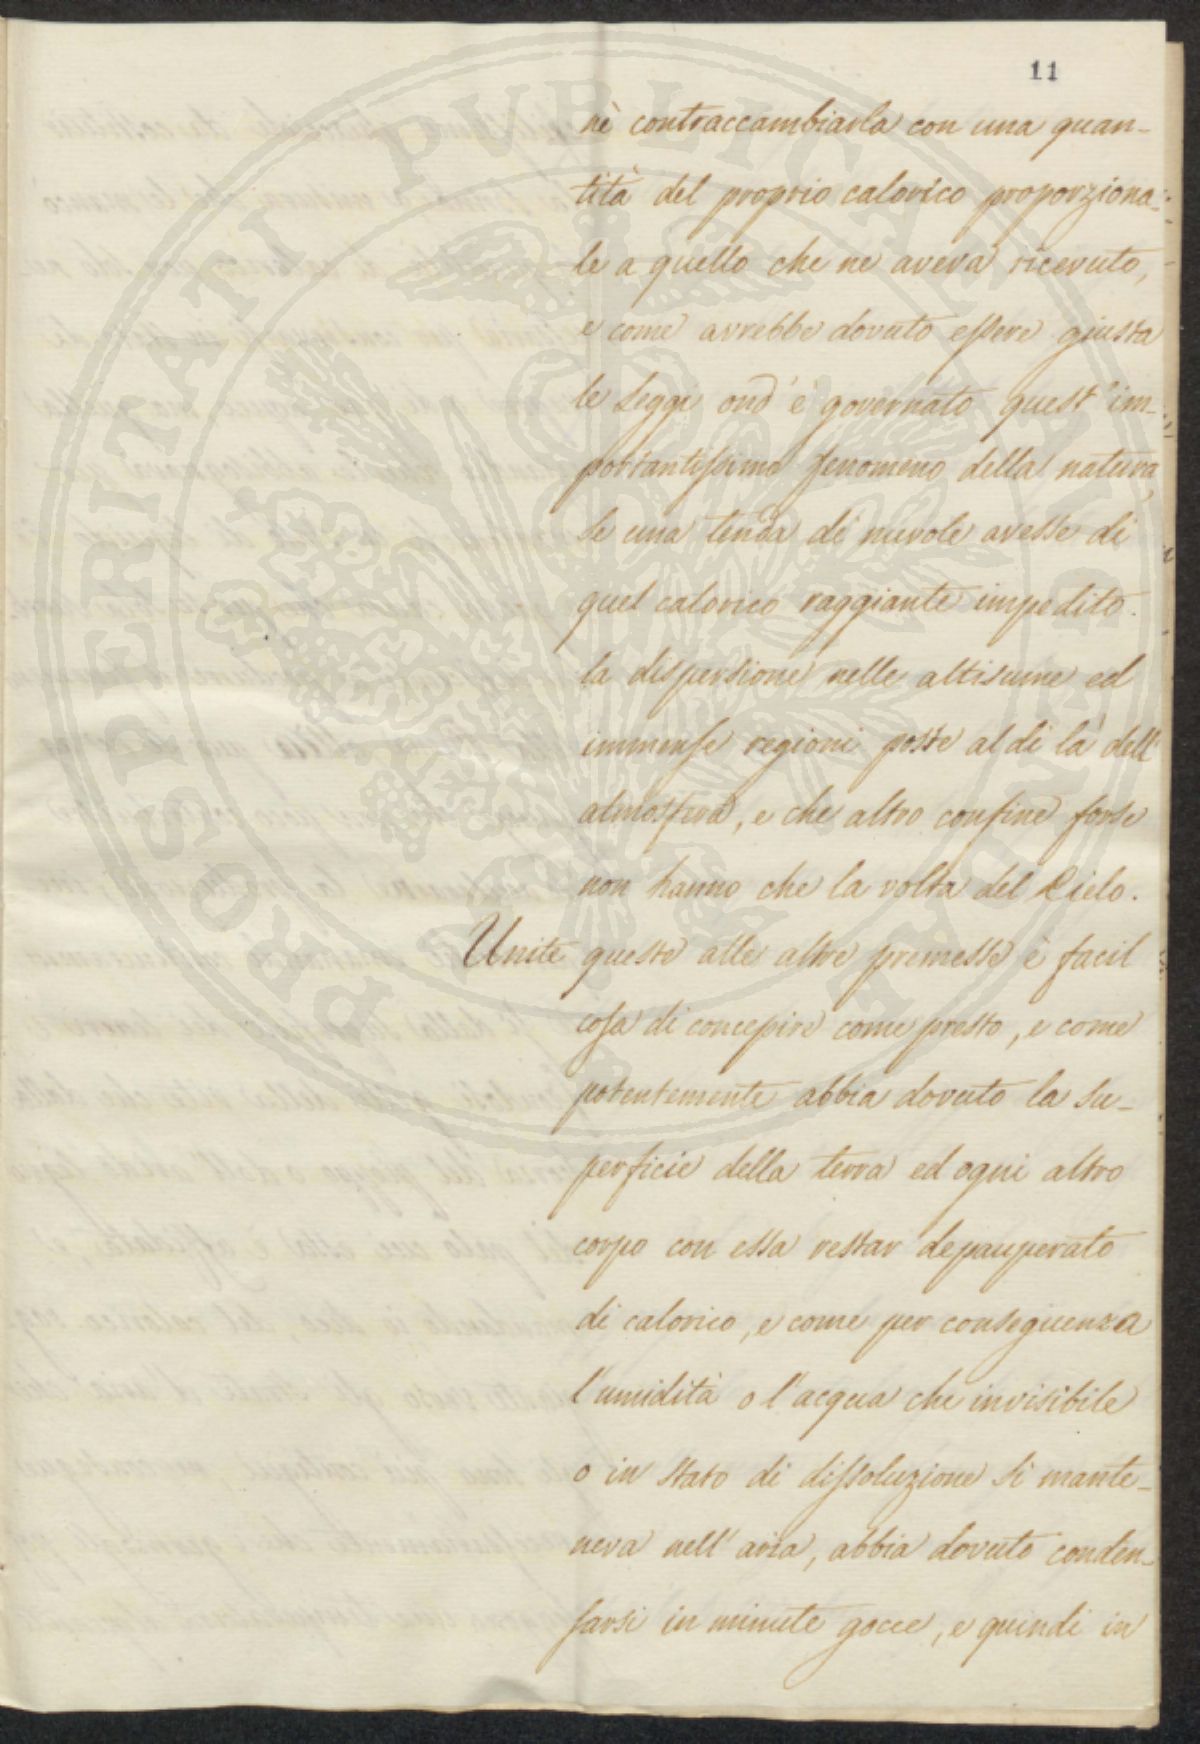 11
nè contraccambiarla con una quan-
tità del proprio calorico proporziona-
le a quello che ne aveva ricevuto,
e come avrebbe dovuto essere giusta
le leggi ond'è governato quest'im-
portantissimo fenomeno della natura,
se una tenda di nuvole avesse di
quel calorico raggiante impedito
la dispersione nelle altissime ed
immense regioni poste al di là dell'
atmosfera, e che altro confine forse
non hanno che la volta del Cielo.
Unite queste alle altre premesse è facil
cosa di concepire come presto, e come
potentemente abbia dovuto la su-
perficie della terra ed ogni altro
corpo con essa restar depauperato
di calorico, e come per conseguenza
l'umidità o l'acqua che invisibile
o in stato di dissoluzione si mante-
neva nell'aria, abbia dovuto conden-
sarsi in minute gocce, e quindi in
PROSPERITATI PUBLICAE AUGENDAE